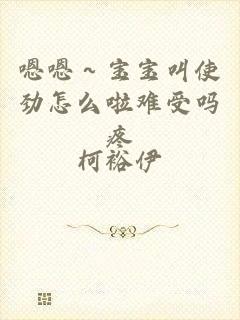 嗯嗯~宝宝叫使
劲怎么啦难受吗
疼
柯裕伊